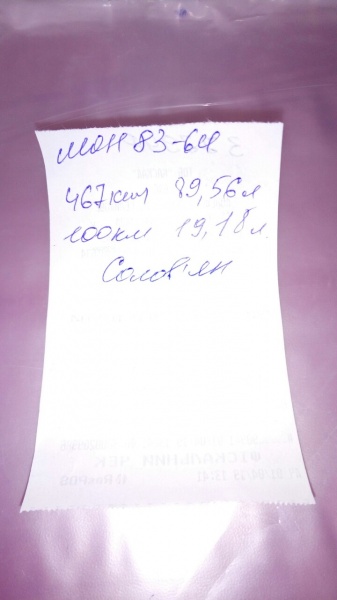 МОН 83-64
467 км 89,56 л
100 км 19,18 л.
Солов'ян
ФІСКАЛЬНИЙ ЧЕК